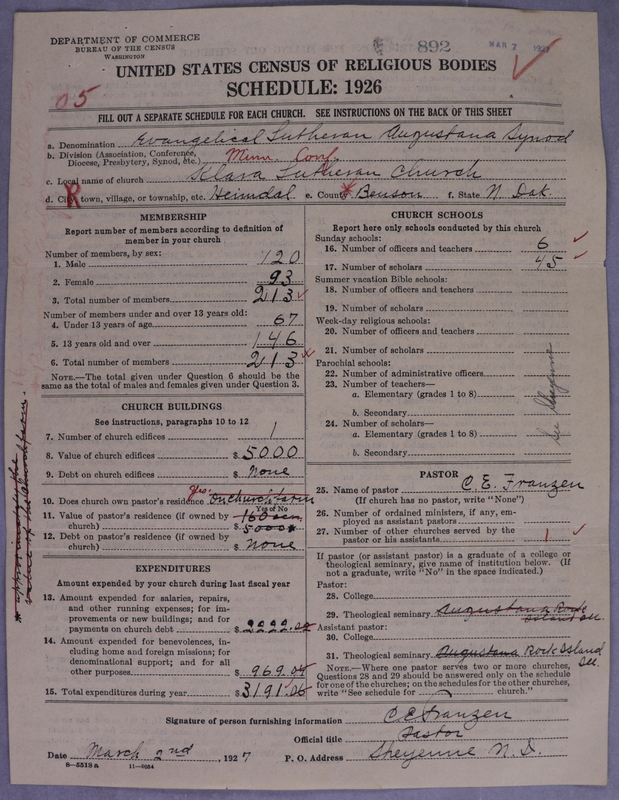 DEPARTMENT OF COMMERCE
BUREAU OF THE CENSUS
WASHINGTON
892
MAR 7 1927
UNITED STATES CENSUS OF RELIGIOUS BODIES
SCHEDULE: 1926
FILL OUT A SEPARATE SCHEDULE FOR EACH CHURCH. SEE INSTRUCTIONS ON THE BACK OF THIS SHEET
a. Denomination Evangelical Lutheran Augustana Synod
b. Division (Association, Conference, Diocese, Presbytery, Synod, etc.) Minn. Conf.
c. Local name of church Klara Lutheran Church
d. City, town, village, or township, etc. Heimdal e. County Benson f. State N. Dak.
MEMBERSHIP
Report number of members according to definition of
member in your church
Number of members, by sex:
1. Male 120
2. Female 93
3. Total number of members 213
Number of members under and over 13 years old:
4. Under 13 years of age 67
5. 13 years old and over 146
6. Total number of members 213
NOTE.—The total given under Question 6 should be the
same as the total of males and females given under Question 3.
CHURCH BUILDINGS
See instructions, paragraphs 10 to 12
7. Number of church edifices 1
8. Value of church edifices $5000
9. Debt on church edifices $ None
10. Does church own pastor's residence Yes. on church farm
Yes or No
11. Value of pastor's residence (if owned by 160 acr.
church) $ 5000
12. Debt on pastor's residence (if owned by
church) $ None
EXPENDITURES
Amount expended by your church during last fiscal year
13. Amount expended for salaries, repairs,
and other running expenses; for im-
provements or new buildings; and for
payments on church debt $2222.02
14. Amount expended for benevolences, in-
cluding home and foreign missions; for
denominational support; and for all
other purposes $969.04
15. Total expenditures during year $3191.06
CHURCH SCHOOLS
Report here only schools conducted by this church
Sunday schools:
16. Number of officers and teachers 6
17. Number of scholars 45
Summer vacation Bible schools:
18. Number of officers and teachers
19. Number of scholars
Week-day religious schools:
20. Number of officers and teachers
21. Number of scholars
Parochial schools:
22. Number of administrative officers
23. Number of teachers—
a. Elementary (grades 1 to 8)
b. Secondary
24. Number of scholars—
a. Elementary (grades 1 to 8)
b. Secondary
See Sheyenne
PASTOR
25. Name of pastor C. E. Franzen
(If church has no pastor, write "None")
26. Number of ordained ministers, if any, em-
ployed as assistant pastors
27. Number of other churches served by the
pastor or his assistants 1
If pastor (or assistant pastor) is a graduate of a college or
theological seminary, give name of institution below. (If
not a graduate, write "No" in the space indicated.)
Pastor:
28. College
29. Theological seminary Augustana Rock
Island Ill.
Assistant pastor:
30. College
31. Theological seminary Augustana Rock Island
Ill.
NOTE.—Where one pastor serves two or more churches,
Questions 28 and 29 should be answered only on the schedule
for one of the churches; on the schedules for the other churches,
write "See schedule for church."
Signature of person furnishing information C E Franzen
Official title Pastor
Date March 2nd, 1927 P. O. Address Sheyenne N. D.
8-5518a 11-9054